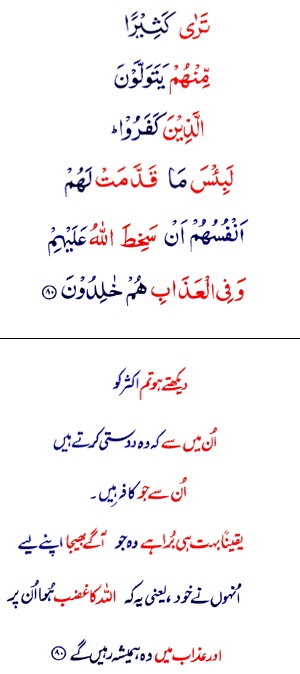 تَرٰى كَثِيْرًا
مِّنْهُمْ يَتَوَلَّوْنَ
الَّذِيْنَ كَفَرُوْا ؕ
لَبِئْسَ مَا قَدَّمَتْ لَهُمْ
اَنْفُسُهُمْ اَنْ سَخِطَ اللّٰهُ عَلَيْهِمْ
وَفِى الْعَذَابِ هُمْ خٰلِدُوْنَ ﴿۸۰﴾
دیکھتے ہو تم اکثر کو
اُن میں سے کہ وہ دوستی کرتے ہیں
اُن سے جو کافر ہیں۔
یقیناً بہت ہی بُرا ہے وہ جو آگے بھیجا اپنے لیے
اُنہوں نے خود ، یعنی یہ کہ اللہ کا غضب ہُوا اُن پر
اور عذاب میں وہ ہمیشہ رہیں گے ﴿۸۰﴾